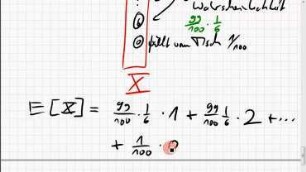 Wahrscheinlichkeit
99/100 · 1/6
6
0 fällt vom Tisch 1/100
X
E[X] = 99/100 · 1/6 · 1 + 99/100 1/6 · 2 + ...
+ 1/100 · 0